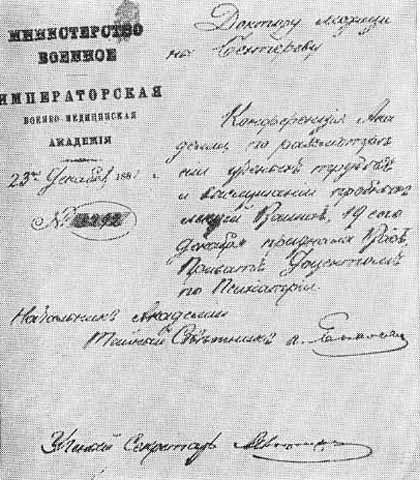 МИНИСТЕРСТВО
ВОЕННОЕ
ИМПЕРАТОРСКАЯ
ВОЕННО-МЕДИЦИНСКАЯ
АКАДЕМІЯ
23го Декабря 1881 г.
№
Доктору медици
ны Бехтереву
Конференція Ака
деміи по разсмотрѣ
ніи ученыхъ трудовъ
и выслушаніи пробныхъ
лекцій Вашихъ, 19 сего
Декабря признала Васъ
Приватъ Доцентомъ
по Психіатріи.
Начальникъ Академіи
Тайный Совѣтникъ
Ученый Секретарь